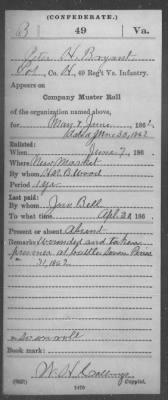 (CONFEDERATE.)
B 49 Va.
Peter H. Bryant
Co. H, 49 Reg't Va. Infantry.
Appears on
Company Muster Roll
of the organization named above,
for May & June, 1862
dated June 30, 1862
Enlisted:
When June 7, 186
Where New Market
By whom H.W. B. Wood
Period 1 yr
Last paid:
By whom Jno Bell
To what time Apl. 30, 186
Present or absent Absent
Remarks: Wounded and taken
prisoner at battle Seven Pines
31, 1862
Book mark:
W. H.
(642) Copyist.